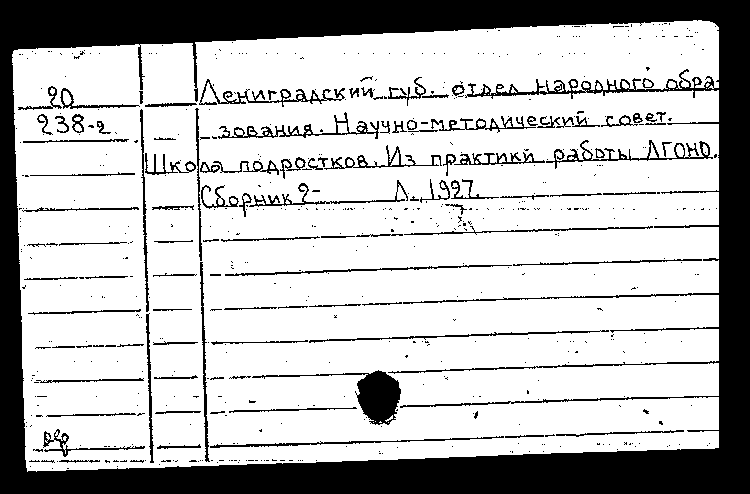 20 Ленинградский губ. отдел народного обра-
238-2 зования. Научно-методический совет.
Школа подростков. Из практики работы ЛГОНО.
Сборник 2- Л., 1927.